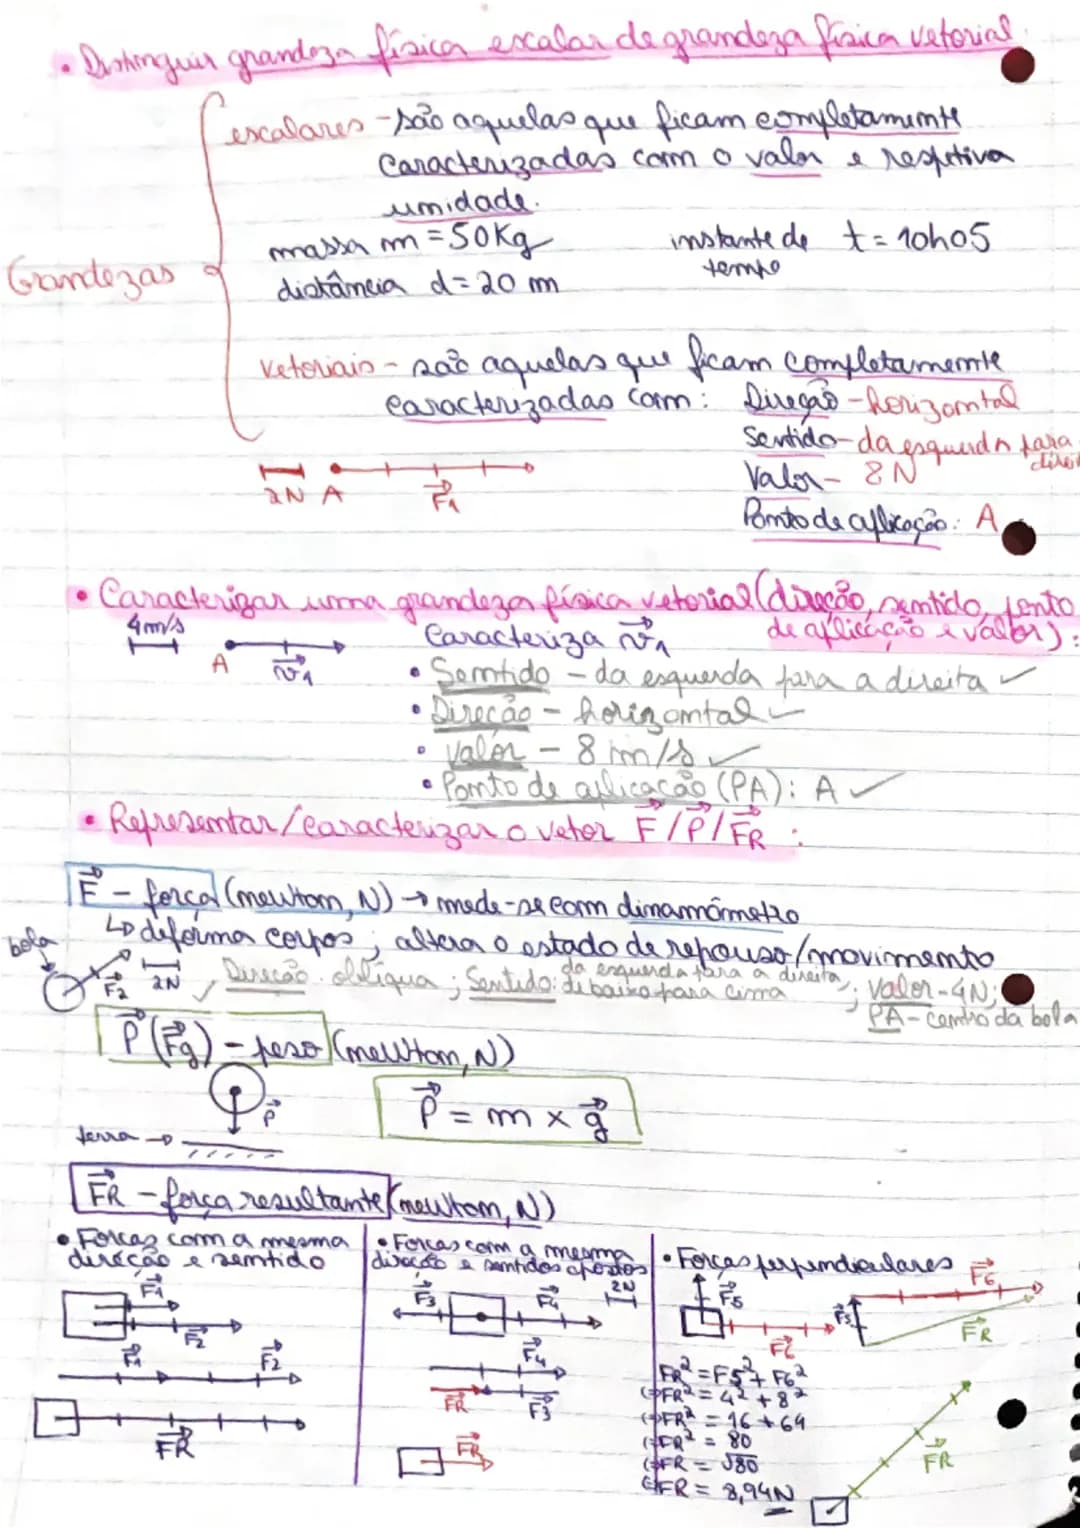 • Distinguir grandeza física escalar de grandeza física vetorial.
Grandezas
escalares - são aquelas que ficam completamente
caracterizadas com o valor e respetiva
unidade.
massa m = 50Kg
instante de tempo t = 10h05
distância d = 20 m
vetoriais - são aquelas que ficam completamente
caracterizadas com: Direção - horizontal
Sentido - da esquerda para direit
Valor - 8N
Ponto de aplicação: A
2N A F⃗1
• Caracterizar uma grandeza física vetorial (direção, sentido, ponto
de aplicação e valor):
4m/s
A v⃗1
Caracteriza v⃗1
• Sentido - da esquerda para a direita ✓
• Direção - horizontal ✓
• Valor - 8 m/s ✓
• Ponto de aplicação (PA): A ✓
• Representar/caracterizar o vetor F⃗/P⃗/F⃗R :
F⃗ - força (newton, N) → mede-se com dinamómetro
↳ deforma corpos ; altera o estado de repouso/movimento
bola
F⃗2 2N
✓ Direção: oblíqua ; Sentido: da esquerda para a direita, de baixo para cima ; Valor - 4N;
PA - centro da bola
P⃗ (F⃗g) - peso (newton, N)
P⃗
P⃗ = m x g⃗
terra →
F⃗R - força resultante (newton, N)
• Forças com a mesma
direção e sentido
F⃗1
F⃗2
F⃗1 F⃗2
F⃗R
• Forças com a mesma
direção e sentidos opostos
F⃗3 F⃗4 2N
F⃗4
F⃗R F⃗3
F⃗R
• Forças perpendiculares
F⃗5
F⃗6
F⃗6
F⃗5
F⃗R
FR² = F5² + F6²
(=) FR² = 4² + 8²
(=) FR² = 16 + 64
(=) FR² = 80
(=) FR = √80
(=) FR = 8,94N
F⃗R